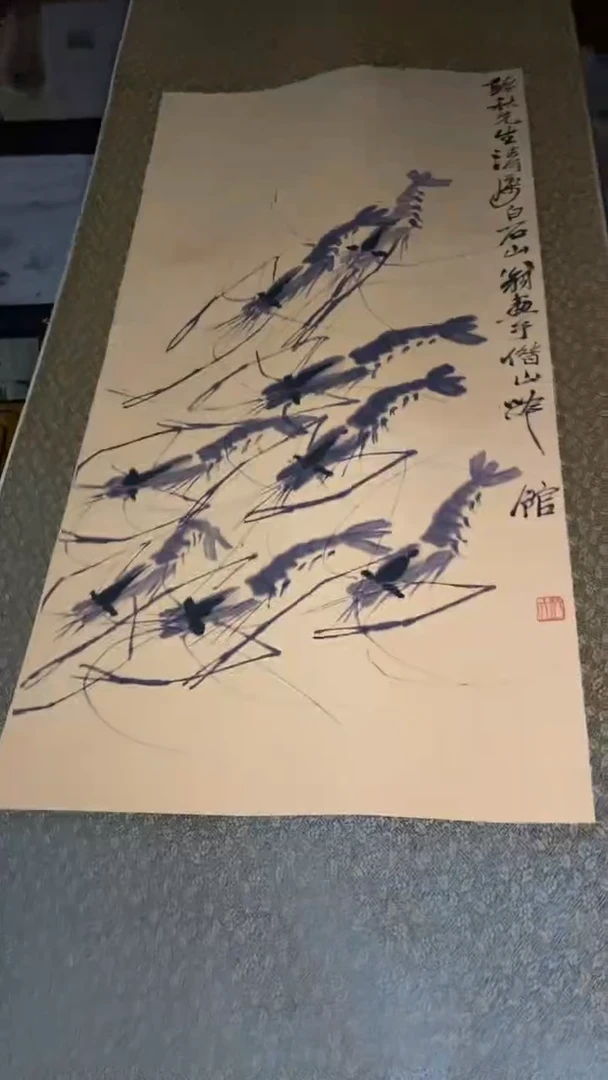 秋先生清属白石山翁畫于借山吟
館